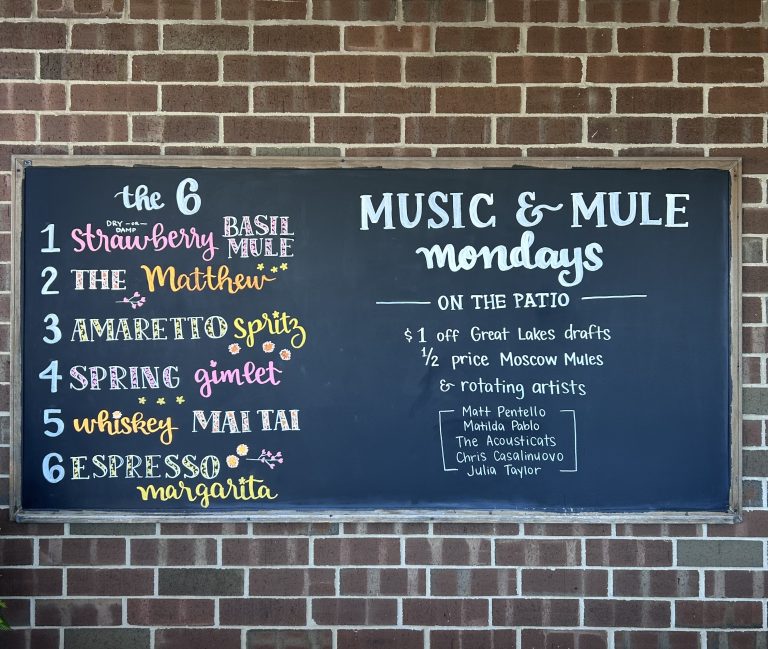 the 6
DRY -OR- DAMP
1 strawberry BASIL MULE
2 THE Matthew
3 AMARETTO spritz
4 SPRING gimlet
5 whiskey MAI TAI
6 ESPRESSO
margarita
MUSIC & MULE
mondays
ON THE PATIO
$1 off Great Lakes drafts
1/2 price Moscow Mules
& rotating artists
Matt Pentello
Matilda Pablo
The Acousticats
Chris Casalinuovo
Julia Taylor